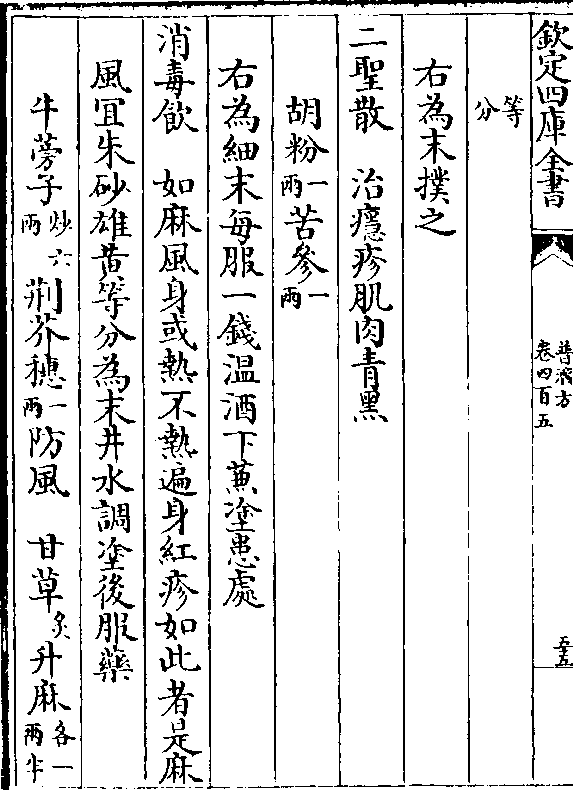 欽定四庫全書
普濟方
卷四百五
五五
等分
右為末撲之
二聖散　治癮疹肌肉青黑
胡粉一兩苦參一兩
右為細末每服一錢温酒下兼塗患處
消毒飲　如麻風身或熱不熱遍身紅疹如此者是麻
風宜朱砂雄黄等分為末井水調塗後服藥
牛蒡子炒六兩荆芥穗一兩防風　甘草炙升麻各一兩半